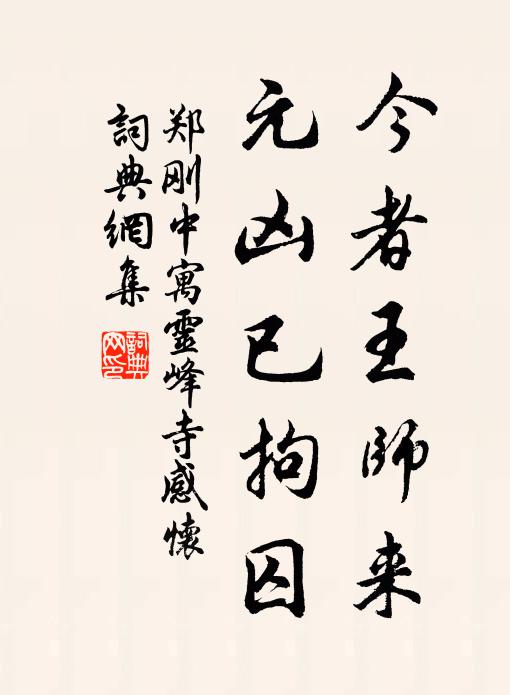 今者王师来
元凶已拘囚
郑刚中寓靈峰寺感懷
詞典網集
詞典网印